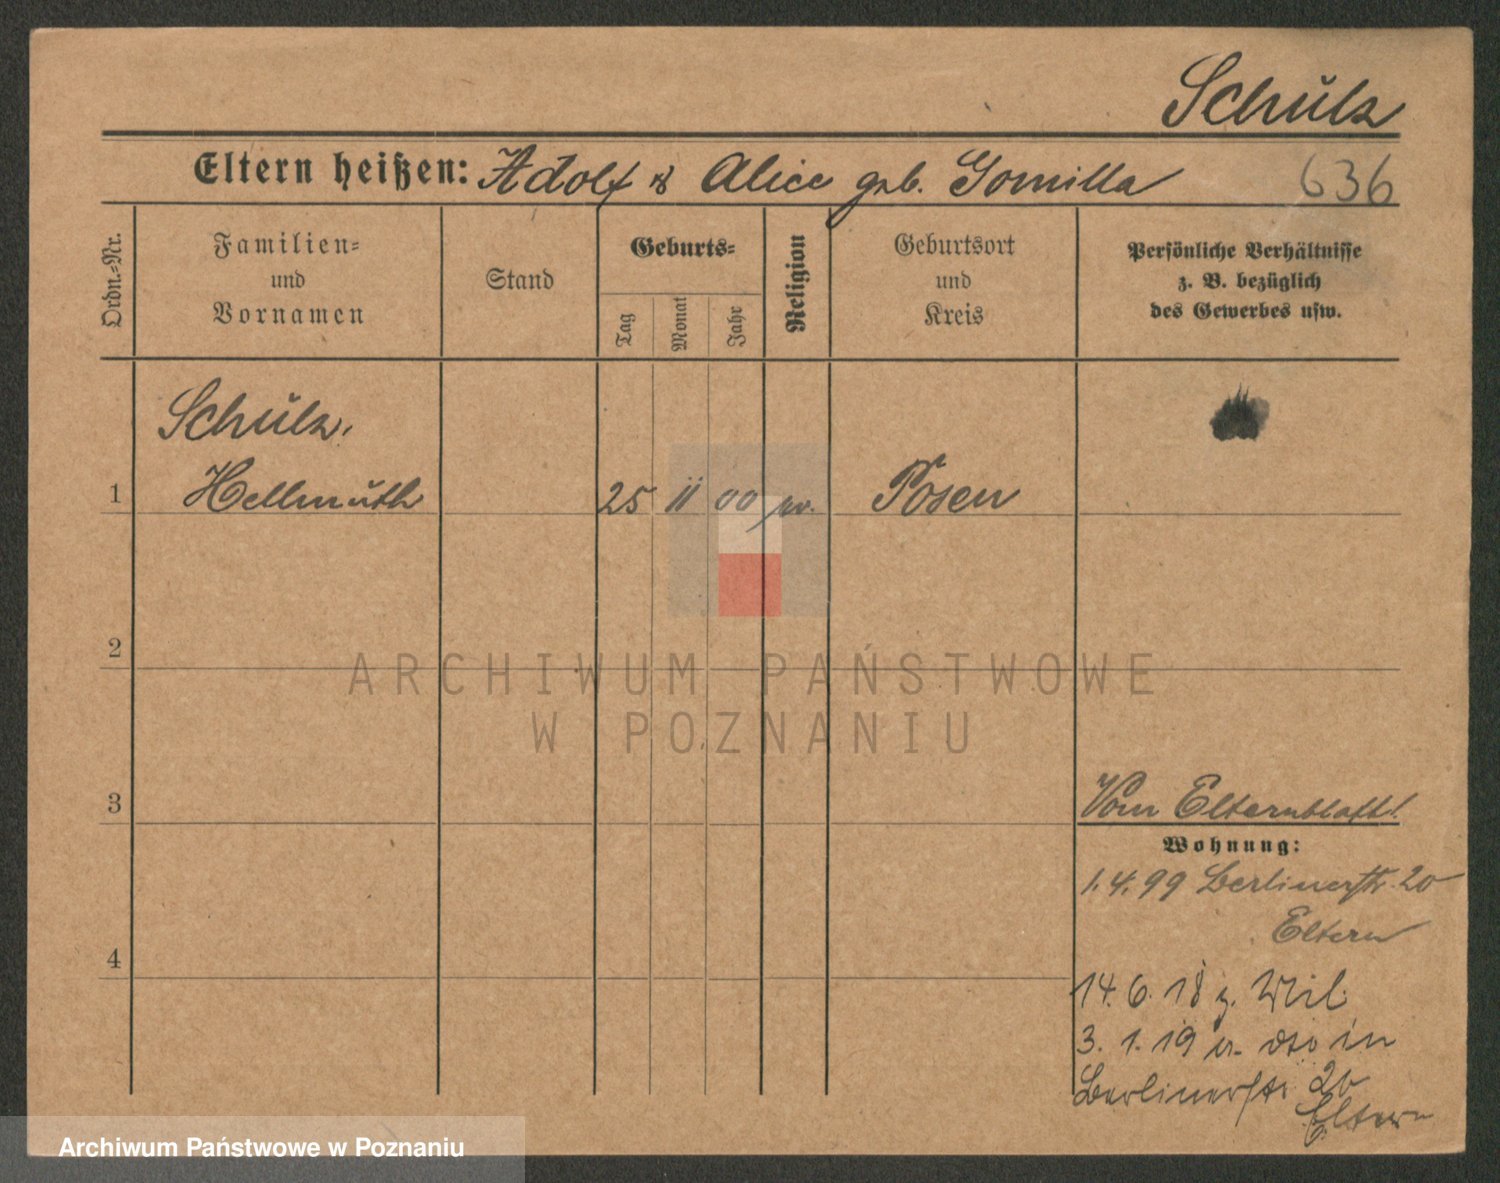 Schulz
Eltern heißen: Adolf & Alice geb. Gomilla 636
Ordn.-Nr.
Familien-
und
Vornamen
Stand
Geburts-
Tag
Monat
Jahr
Religion
Geburtsort
und
Kreis
Persönliche Verhältnisse
z. B. bezüglich
des Gewerbes usw.
Schulz,
1 Hellmuth 25 11 00 ev. Posen
2
3
Vom Elternblatt!
Wohnung:
1.4.99 Berlinerstr. 20
Eltern
4
14.6.18 z. Mil.
3.1.19 v. dto in
Berlinerstr. 20
Eltern
ARCHIWUM PAŃSTWOWE
W POZNANIU
Archiwum Państwowe w Poznaniu